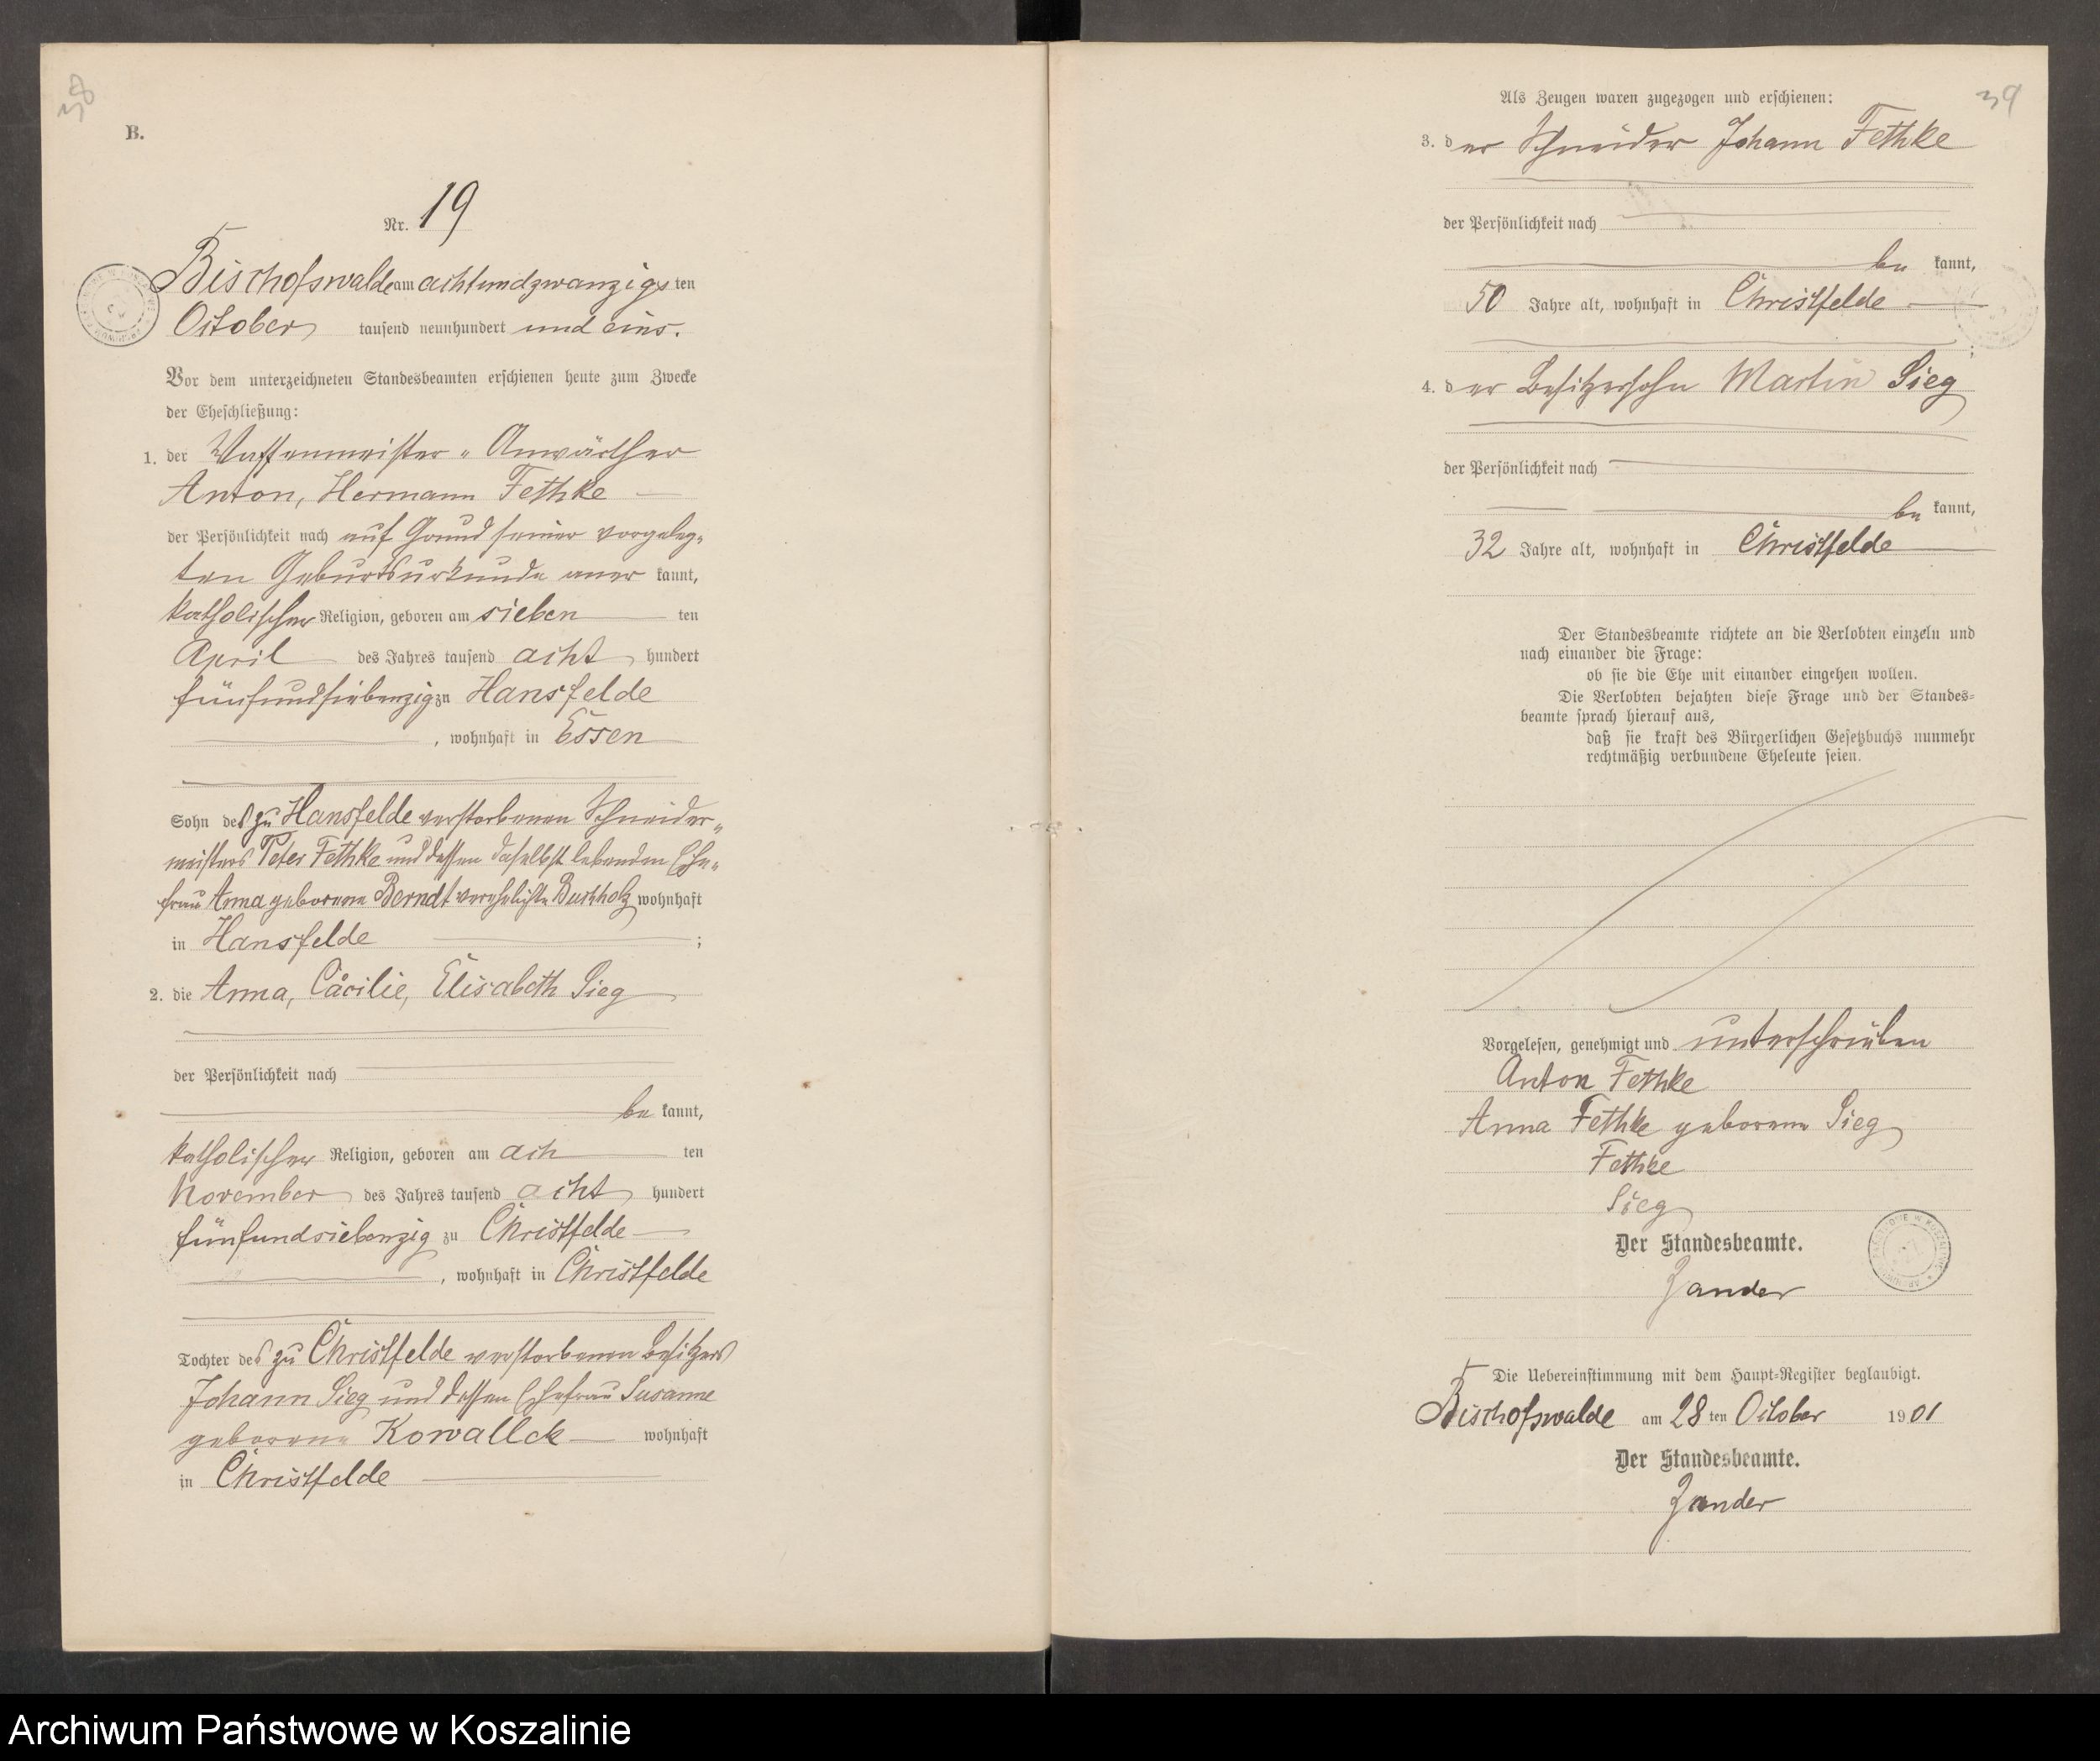 38
B.
Nr. 19
Bischofswalde am achtundzwanzigs ten
October tausend neunhundert und eins.
Vor dem unterzeichneten Standesbeamten erschienen heute zum Zwecke
der Eheschließung:
1. der Waffenmeister-Anwärther
Anton, Hermann Fethke
der Persönlichkeit nach auf Grund seiner vorgeleg-
ten Geburtsurkunde aner kannt,
katholischer Religion, geboren am sieben ten
April des Jahres tausend acht hundert
fünfundsiebenzig zu Hansfelde
, wohnhaft in Essen
Sohn des zu Hansfelde verstorbenen Schneider-
meisters Peter Fethke und dessen daselbst lebenden Ehe-
frau Anna geborene Berndt verehelichte Buchholz wohnhaft
in Hansfelde ;
2. die Anna, Cäcilie, Elisabeth Sieg
der Persönlichkeit nach
be kannt,
katholischer Religion, geboren am ach ten
November des Jahres tausend acht hundert
fünfundsiebenzig zu Christfelde
, wohnhaft in Christfelde
Tochter des zu Christfelde verstorbenen Besitzers
Johann Sieg und dessen Ehefrau Susanne
geborene Kowallek wohnhaft
in Christfelde
39
Als Zeugen waren zugezogen und erschienen:
3. d er Schneider Johann Fethke
der Persönlichkeit nach
be kannt,
50 Jahre alt, wohnhaft in Christfelde
;
4. d er Besitzersohn Martin Sieg
der Persönlichkeit nach
be kannt,
32 Jahre alt, wohnhaft in Christfelde
Der Standesbeamte richtete an die Verlobten einzeln und
nach einander die Frage:
ob sie die Ehe mit einander eingehen wollen.
Die Verlobten bejahten diese Frage und der Standes-
beamte sprach hierauf aus,
daß sie kraft des Bürgerlichen Gesetzbuchs nunmehr
rechtmäßig verbundene Eheleute seien.
Vorgelesen, genehmigt und unterschrieben
Anton Fethke
Anna Fethke geborene Sieg
Fethke
Sieg
Der Standesbeamte.
Zander
Die Uebereinstimmung mit dem Haupt-Register beglaubigt.
Bischofswalde am 28 ten October 1901
Der Standesbeamte.
Zander
Archiwum Państwowe w Koszalinie